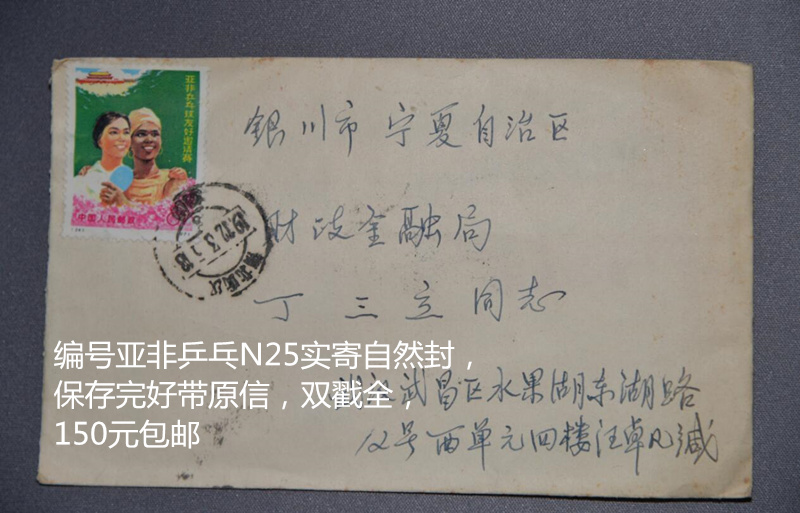 亚非乒乓球友好邀请赛
中国人民邮政
银川市 宁夏自治区
财政金融局
丁三立同志
武昌区水果湖东湖路
12号西单元四楼汪卓凡缄
编号亚非乒乓N25实寄自然封，
保存完好带原信，双戳全，
150元包邮